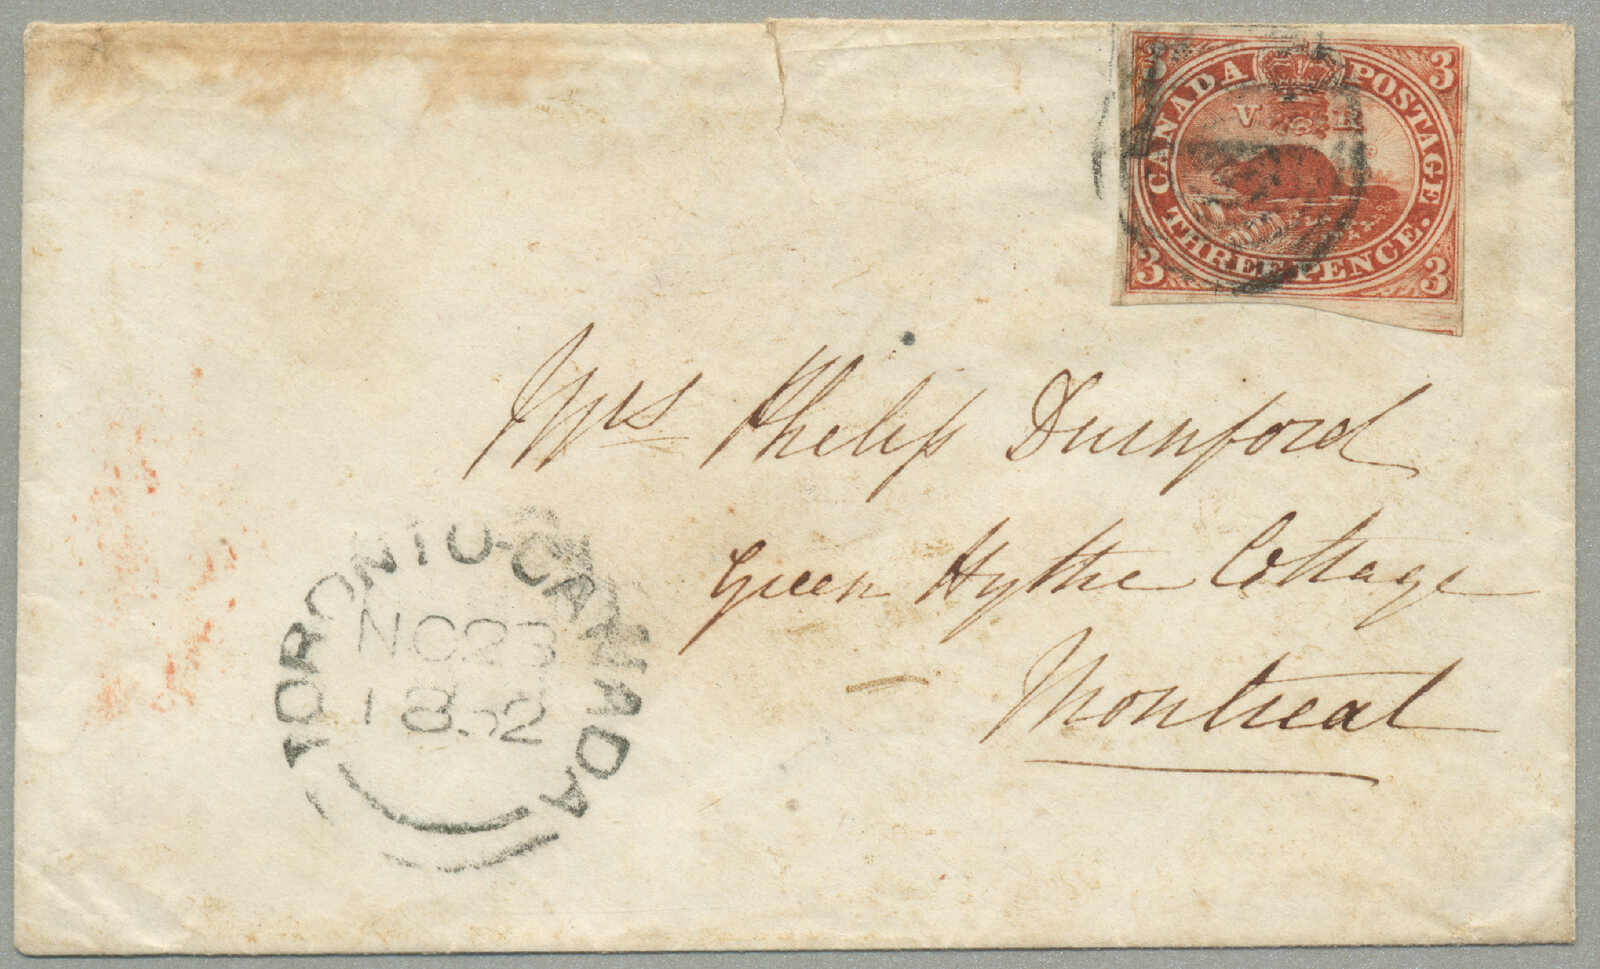 3 3
CANADA POSTAGE
V R
THREE PENCE.
3 3
Mrs Philip Durnford
Green Hythe Cottage
Montreal
TORONTO-CANADA
NO 23
1852